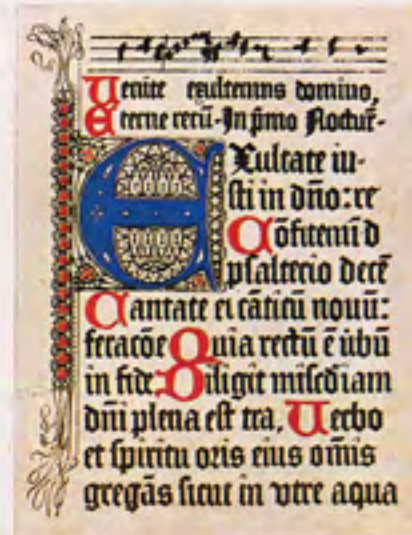 Venite exultemus domino,
Eterne rerū. In p̄mo Noctur̄.
EXultate iu-
sti in dño: re
Cōfitemi͞ d
psalterio decē
Cantate ei cāticū nouū:
feracōe Quia rectū ē v̄bū
in fide. Diligit misc̄diam
dn̄i plena est tr̄a, Verbo
et spiritu oris eius om̄is
gregās sicut in vtre aqua